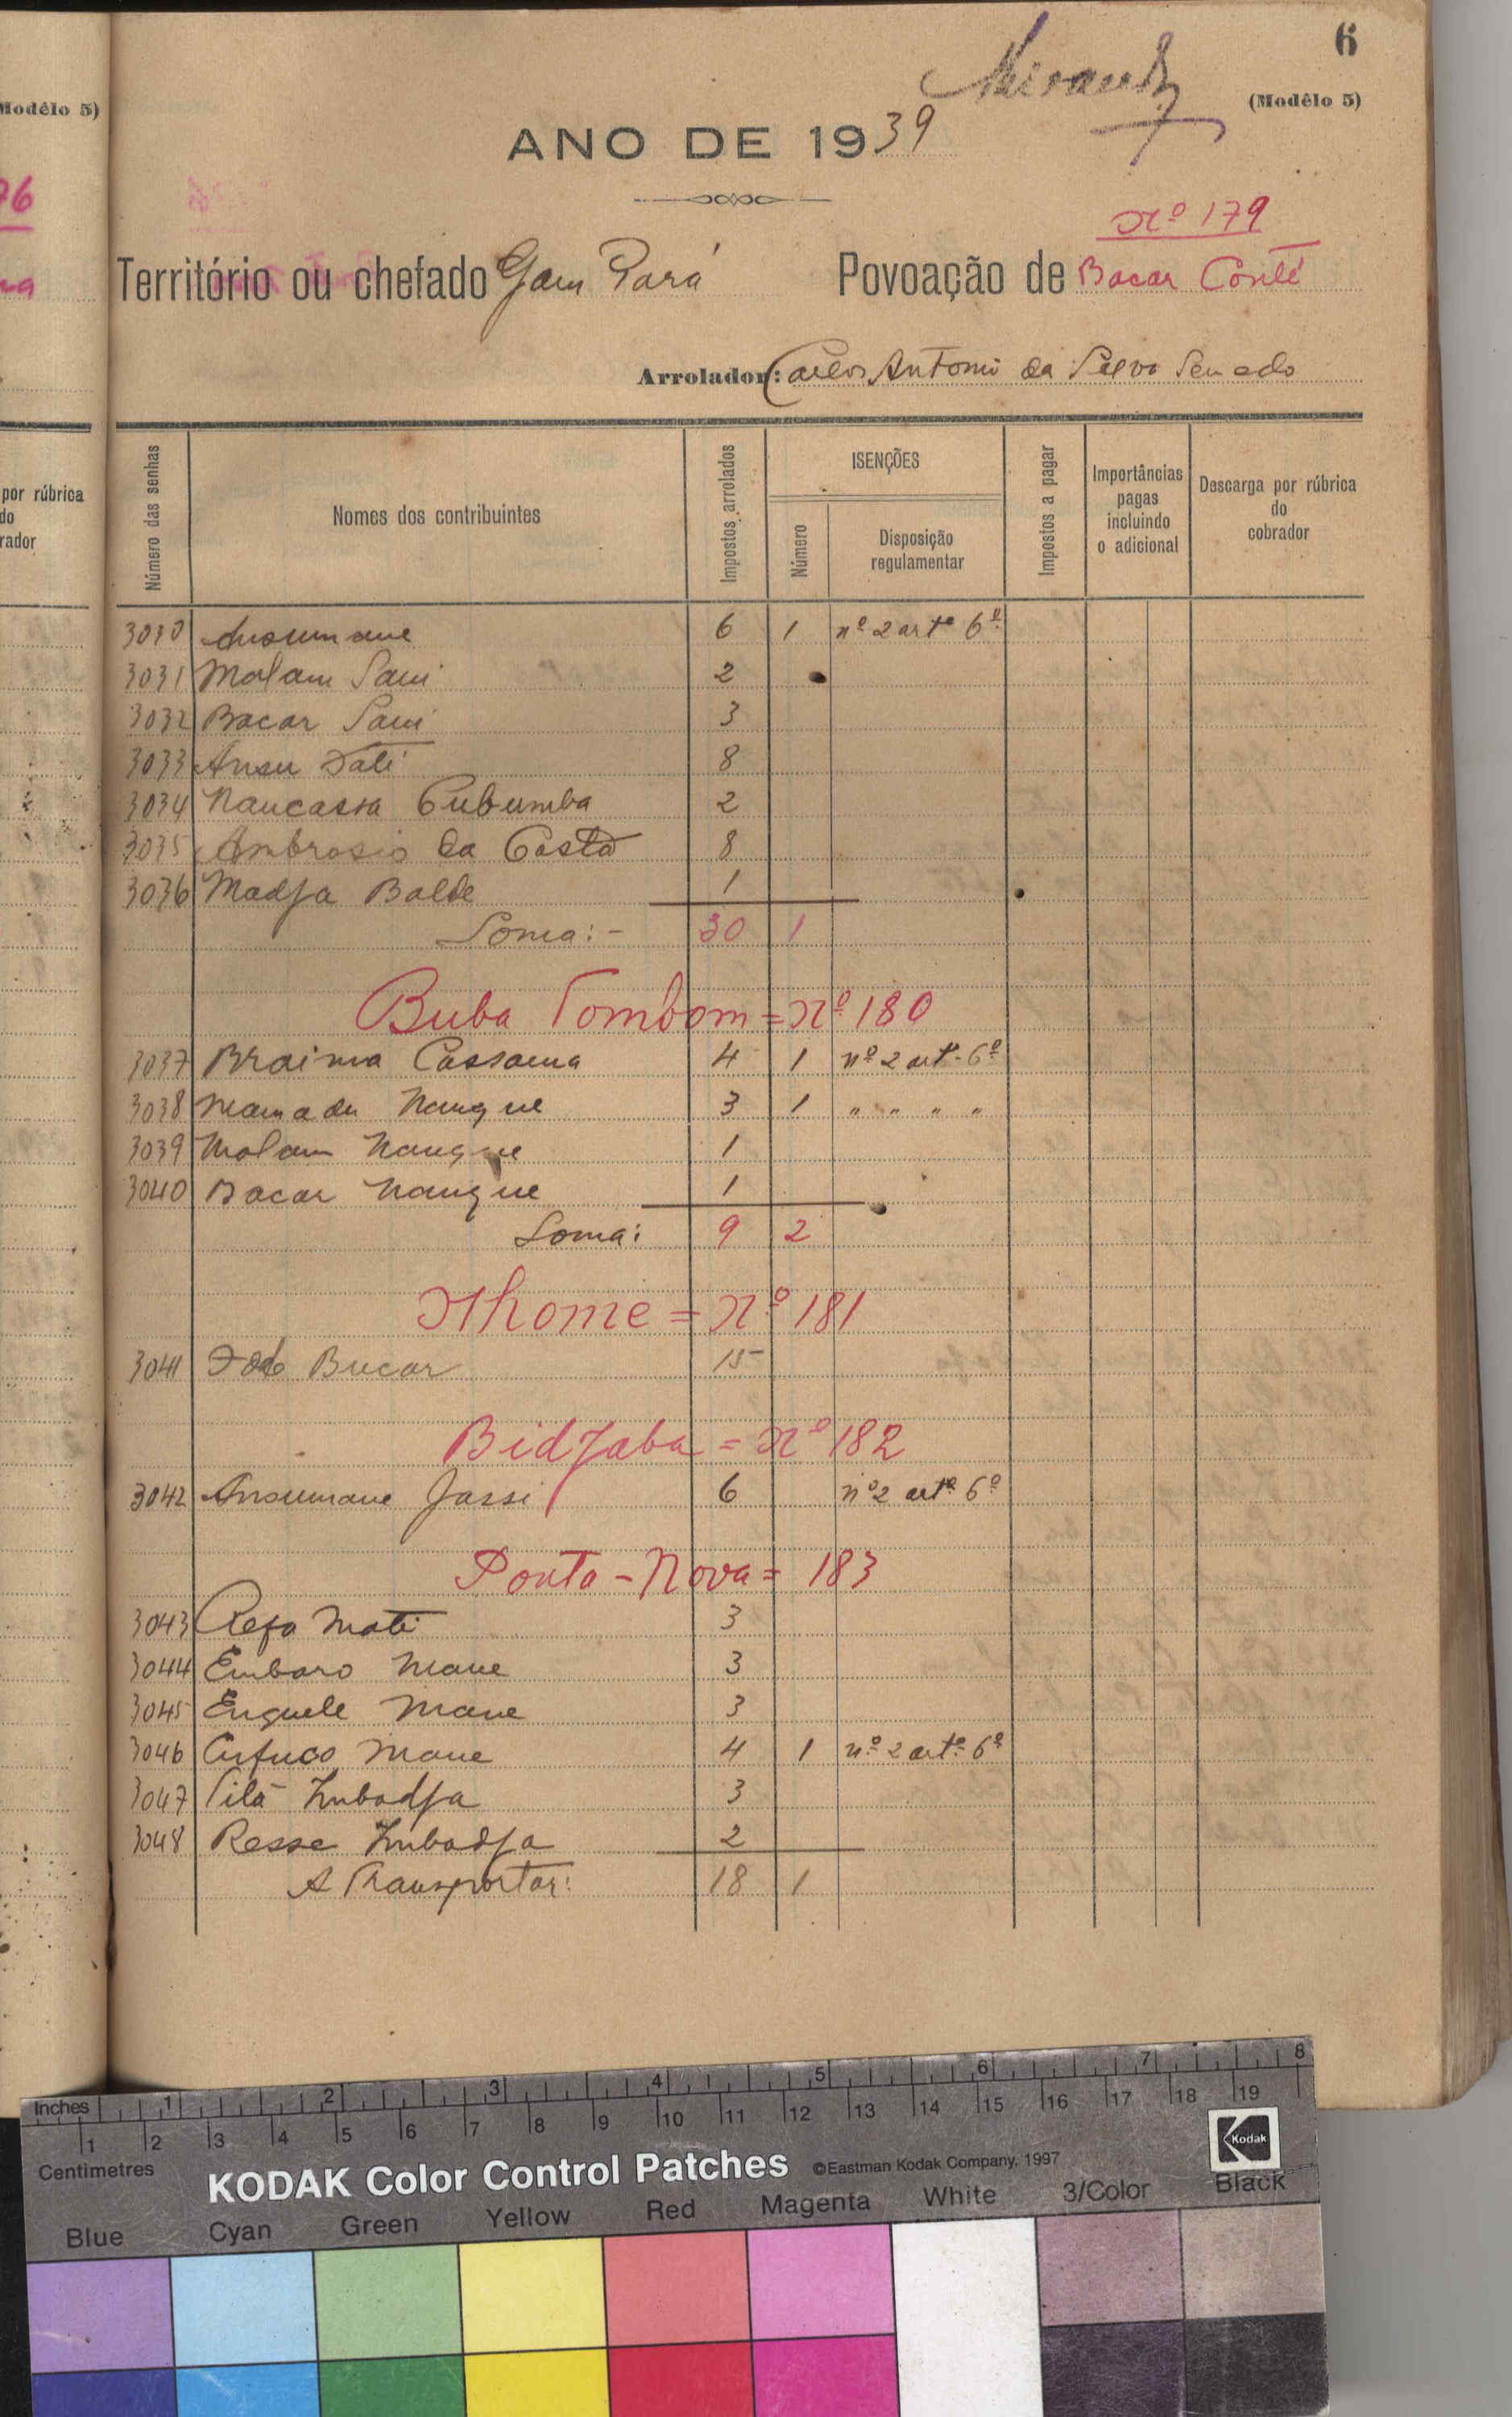 6
Modêlo 5)
(Modêlo 5)
ANO DE 1939
76
Nº 179
Território ou chefado Gam Pará Povoação de Bacar Conté
Arrolador: Carlos Antonio da Silva
por rúbrica
do
rador
Número das senhas
Nomes dos contribuintes
Impostos arrolados
ISENÇÕES
Número
Disposição
regulamentar
Impostos a pagar
Importâncias
pagas
incluindo
o adicional
Descarga por rúbrica
do
cobrador
3030 Ansumane 6 1 nº 2 artº 6º
3031 Malam Sani 2
3032 Bacar Sani 3
3033 Ansu Dabi 8
3034 Nancassa Cubumba 2
3035 Ambrosio da Costa 8
3036 Madja Balde 1
Soma:- 30 1
Buba Tombom = Nº 180
3037 Braima Cassama 4 1 nº 2 artº 6º
3038 Mamadu Nanque 3 1 " " " "
3039 Malam Nanque 1
3040 Bacar Nanque 1
Soma: 9 2
Nhome = Nº 181
3041 Bucar 15
Bidjaba = Nº 182
3042 Ansumane Jassi 6 nº 2 artº 6º
Ponta-Nova = 183
3043 Refa Mati 3
3044 Embaro Mane 3
3045 Enguele Mane 3
3046 Cufuco Mane 4 1 nº 2 artº 6º
3047 Tilá Imbadja 3
3048 Resse Imbadja 2
A Transportar: 18 1
Inches 1 2 3 4 5 6 7 8
1 2 3 4 5 6 7 8 9 10 11 12 13 14 15 16 17 18 19
Centimetres
KODAK Color Control Patches ©Eastman Kodak Company, 1997 Kodak
Blue Cyan Green Yellow Red Magenta White 3/Color Black